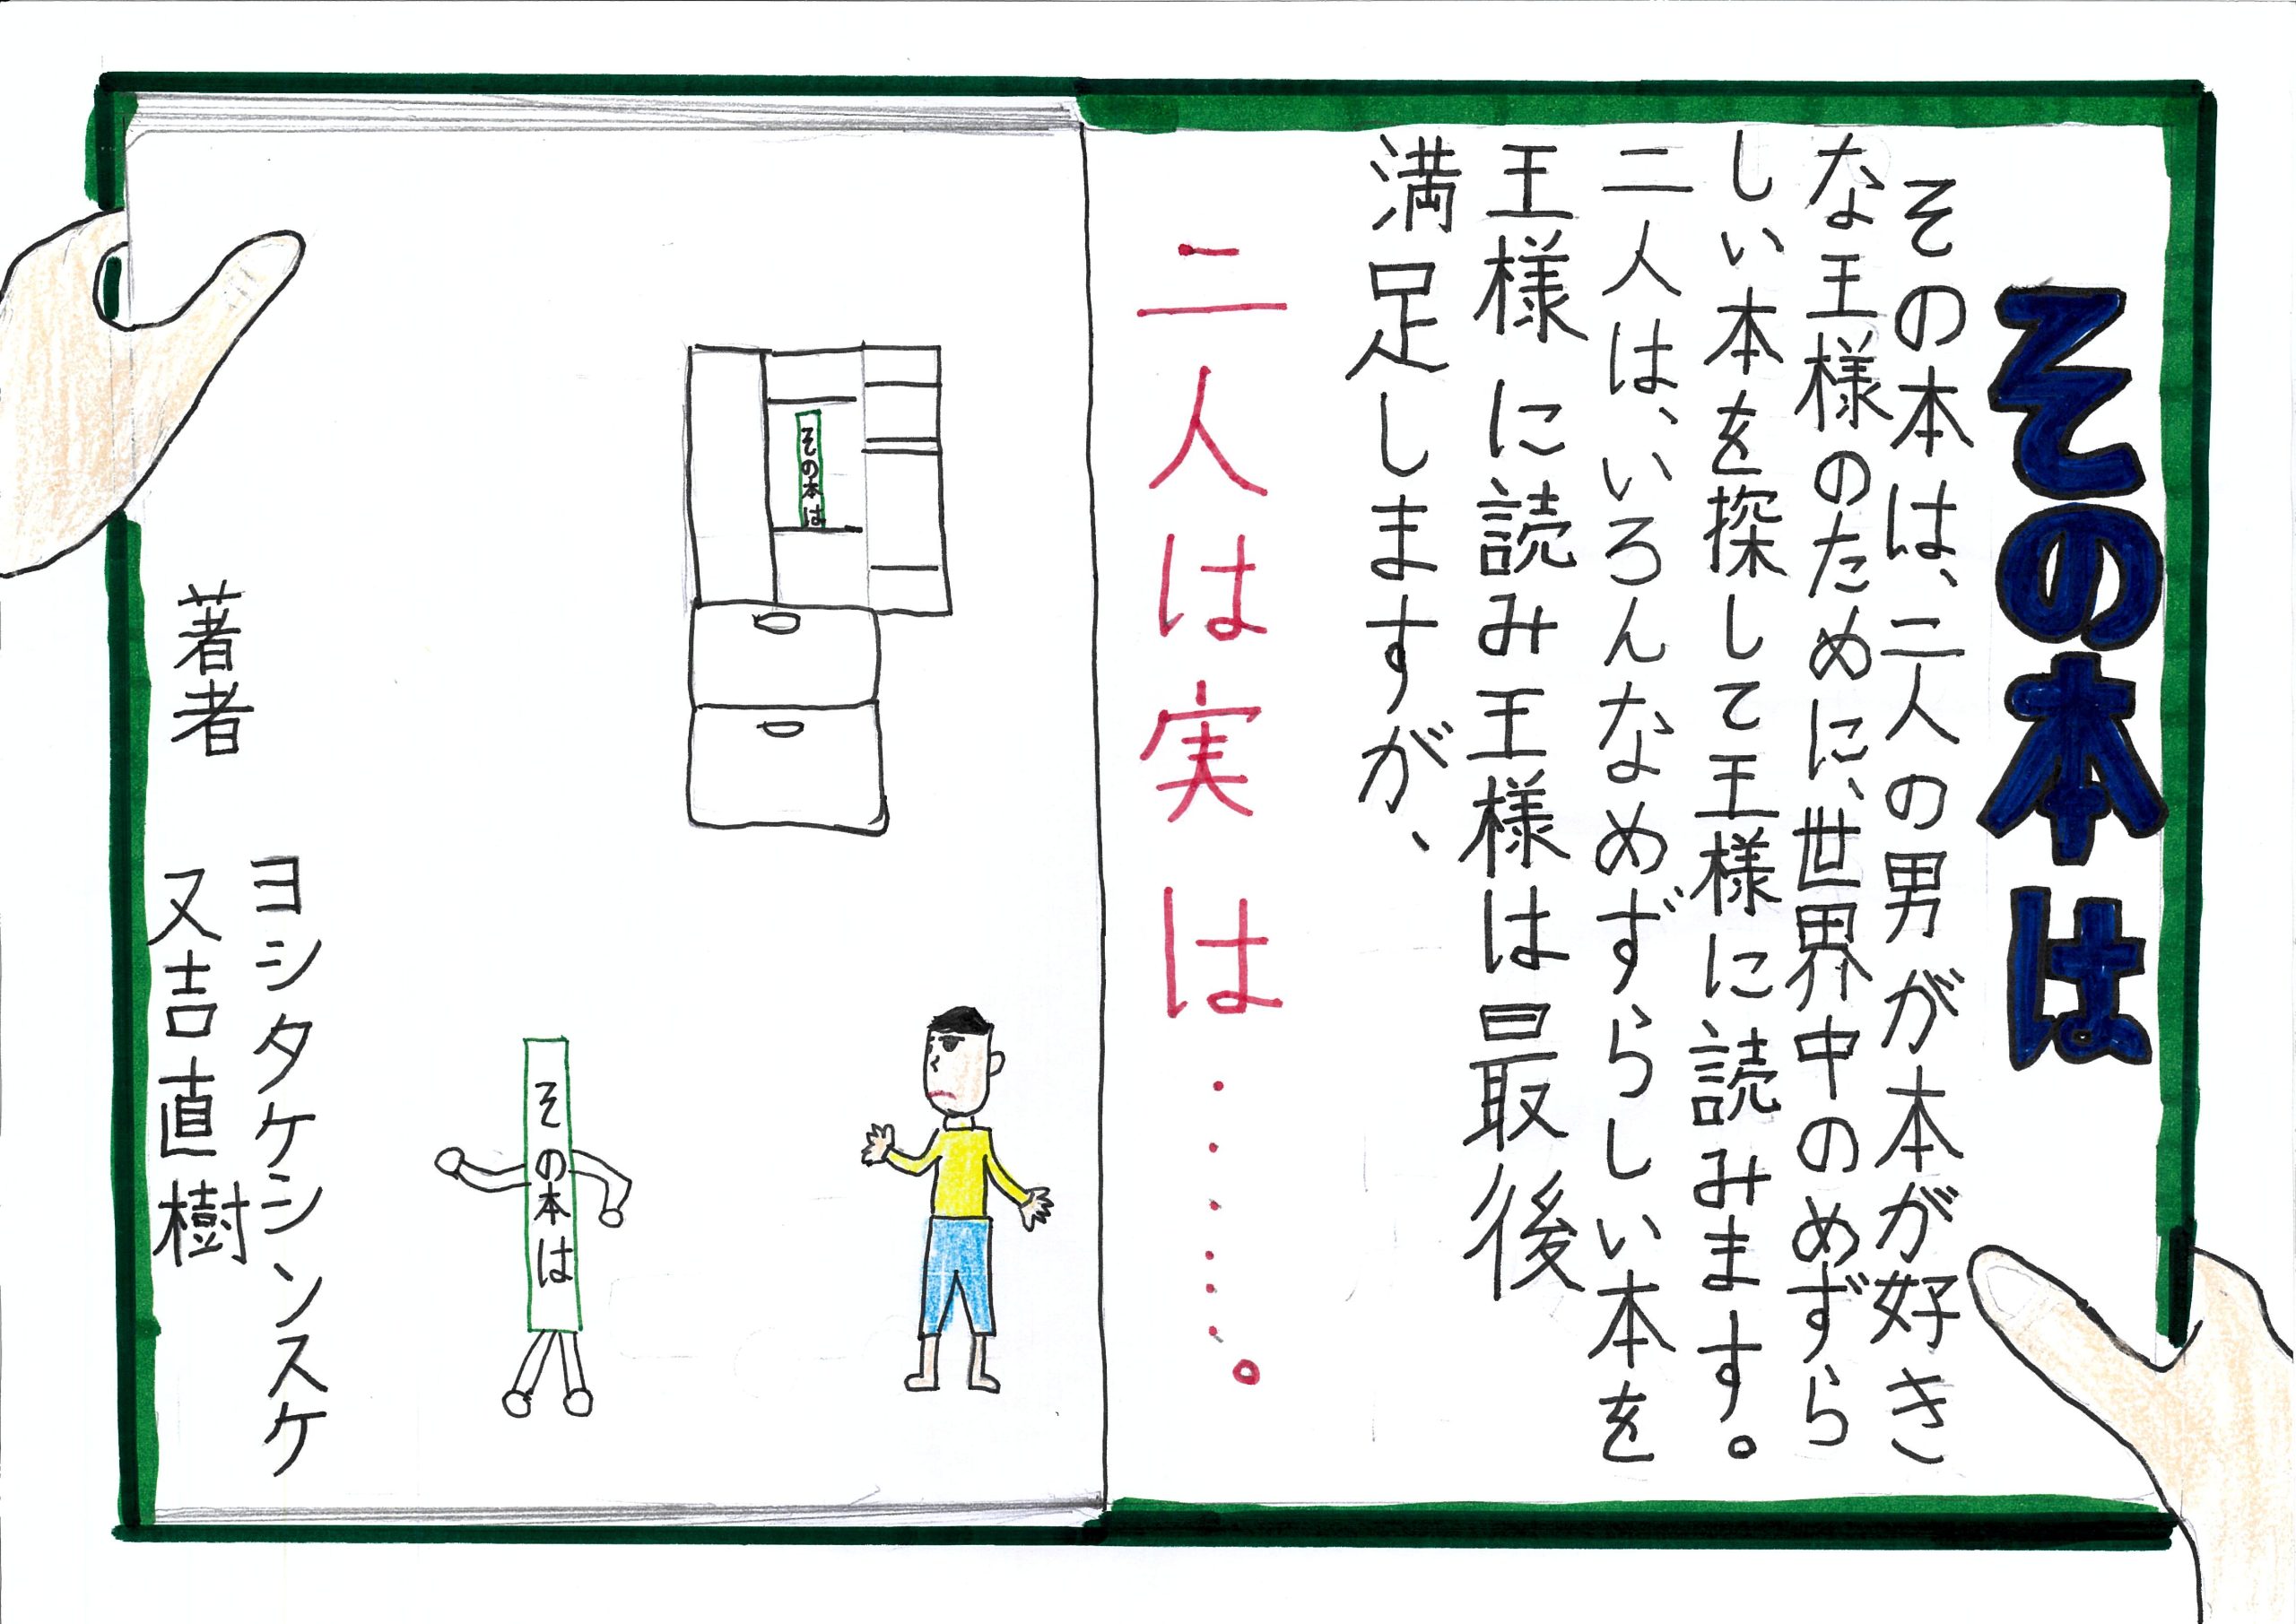 その本は
その本は、二人の男が本が好き
な王様のために、世界中のめずら
しい本を探して王様に読みます。
二人は、いろんなめずらしい本を
王様に読み王様は最後
満足しますが、
二人は実は・・・・・・。
その本は
その本は
著者
ヨシタケシンスケ
又吉直樹